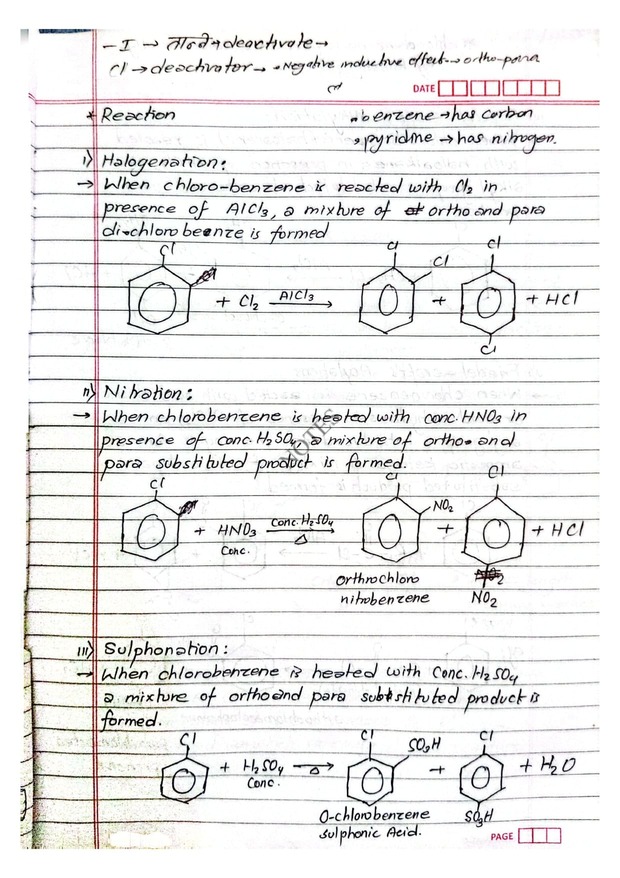 -I → तान्ने → deactivate →
Cl → deactivator → • Negative inductive effect → ortho-para
DATE
* Reaction
• benzene → has carbon
, pyridine → has nitrogen.
i) Halogenation:
→ When chloro-benzene is reacted with Cl2 in
presence of AlCl3, a mixture of ortho and para
di-chloro beenze is formed
Cl Cl Cl Cl
+ Cl2 AlCl3 → + + HCl
Cl
ii) Nitration:
→ When chlorobenzene is heated with conc. HNO3 in
presence of conc. H2SO4, a mixture of ortho and
para substituted product is formed.
NOTES
Cl Cl NO2 Cl
+ HNO3 Conc. H2SO4 → + + HCl
Conc. Δ
orthochloro NO2
nitrobenzene NO2
iii) Sulphonation:
→ When chlorobenzene is heated with Conc. H2SO4
a mixture of ortho and para substituted product is
formed.
Cl Cl SO3H Cl
+ H2SO4 → Δ + + H2O
Conc.
O-chlorobenzene SO3H
sulphonic Acid.
PAGE